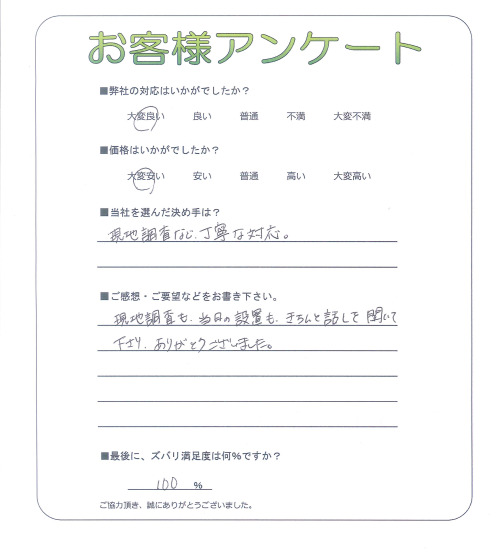 お客様アンケート
■弊社の対応はいかがでしたか？
大変良い 良い 普通 不満 大変不満
■価格はいかがでしたか？
大変安い 安い 普通 高い 大変高い
■当社を選んだ決め手は？
現地調査など、丁寧な対応。
■ご感想・ご要望などをお書き下さい。
現地調査も、当日の設置も、きちんと話しを聞いて
下さり、ありがとうございました。
■最後に、ズバリ満足度は何%ですか？
100 %
ご協力頂き、誠にありがとうございました。